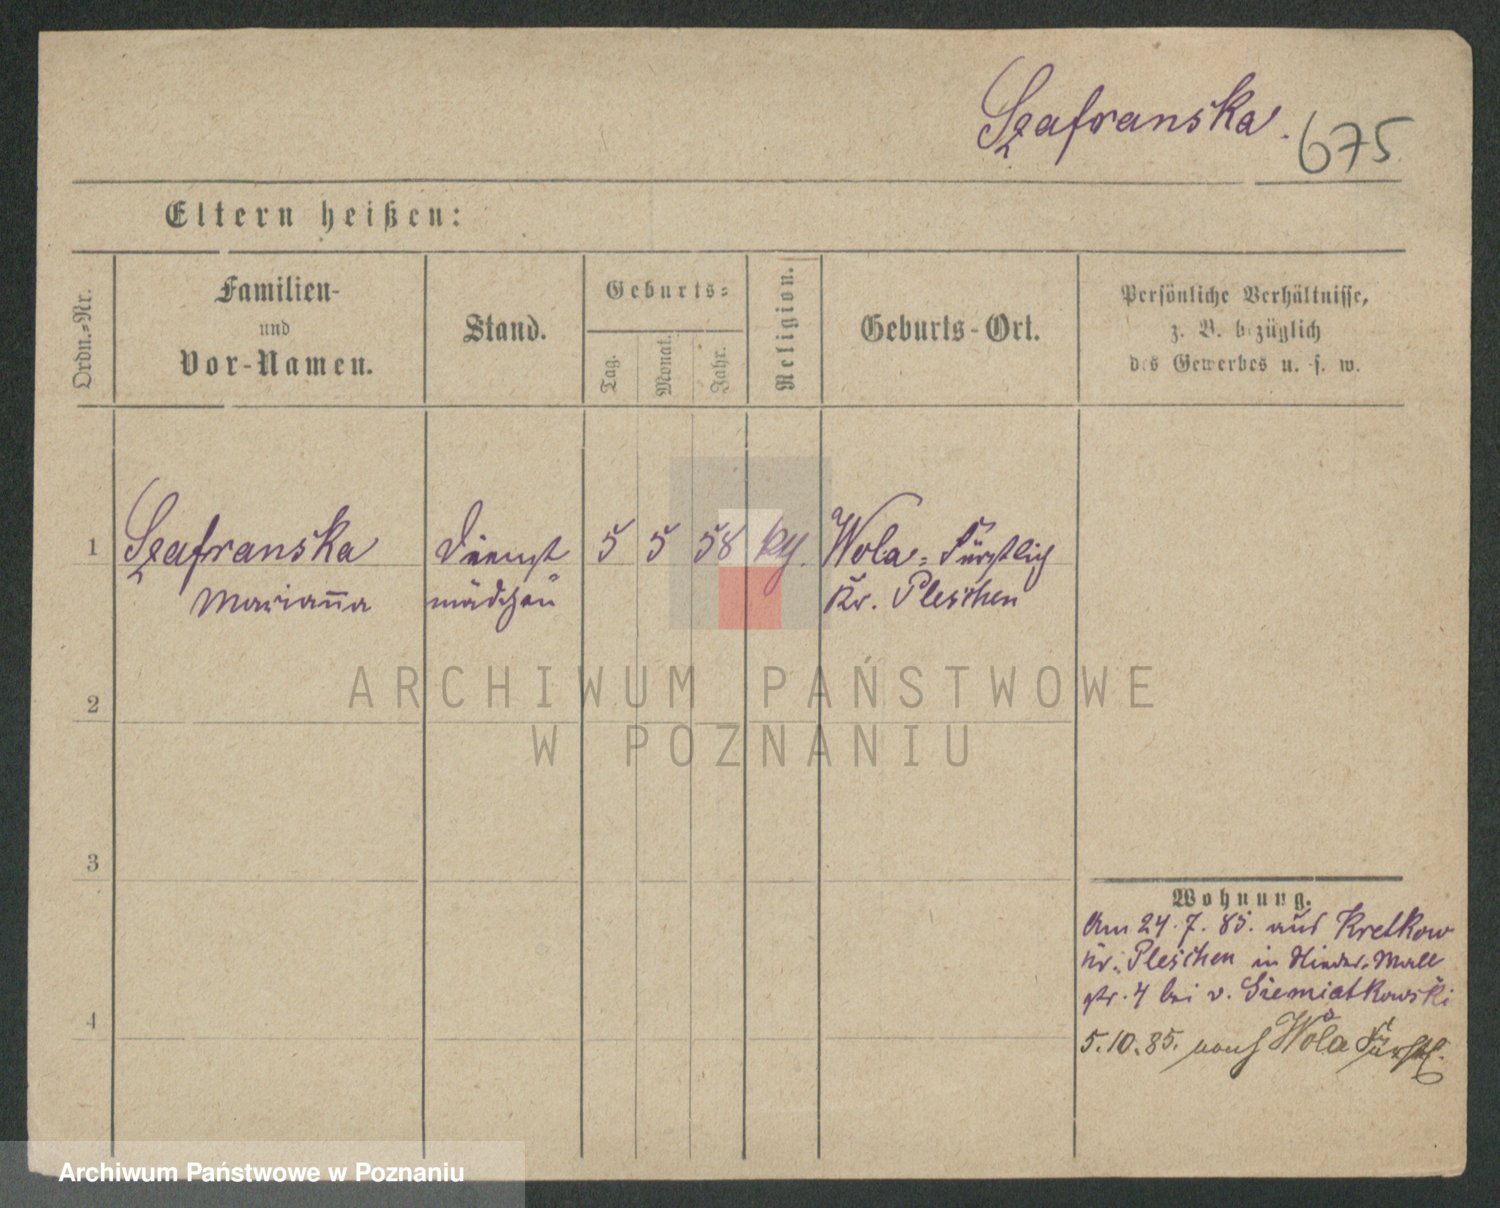 Szafranska.
675
Eltern heißen:
Ordn.-Nr.
Familien-
und
Vor-Namen.
Stand.
Geburts-
Tag.
Monat.
Jahr.
Religion.
Geburts-Ort.
Persönliche Verhältnisse,
z. B. bezüglich
des Gewerbes u. s. w.
1 Szafranska Dienst 5 5 58 Wola-Fürstlich
Marian̄a mädchen Kr. Pleschen
ARCHIWUM PAŃSTWOWE
W POZNANIU
2
3
4
Wohnung.
Am 24.7.85. aus Kretkow
Kr. Pleschen in Wall
str. 4 bei v. Siemiatkowski
5.10.85. nach Wola Fürstl.
Archiwum Państwowe w Poznaniu